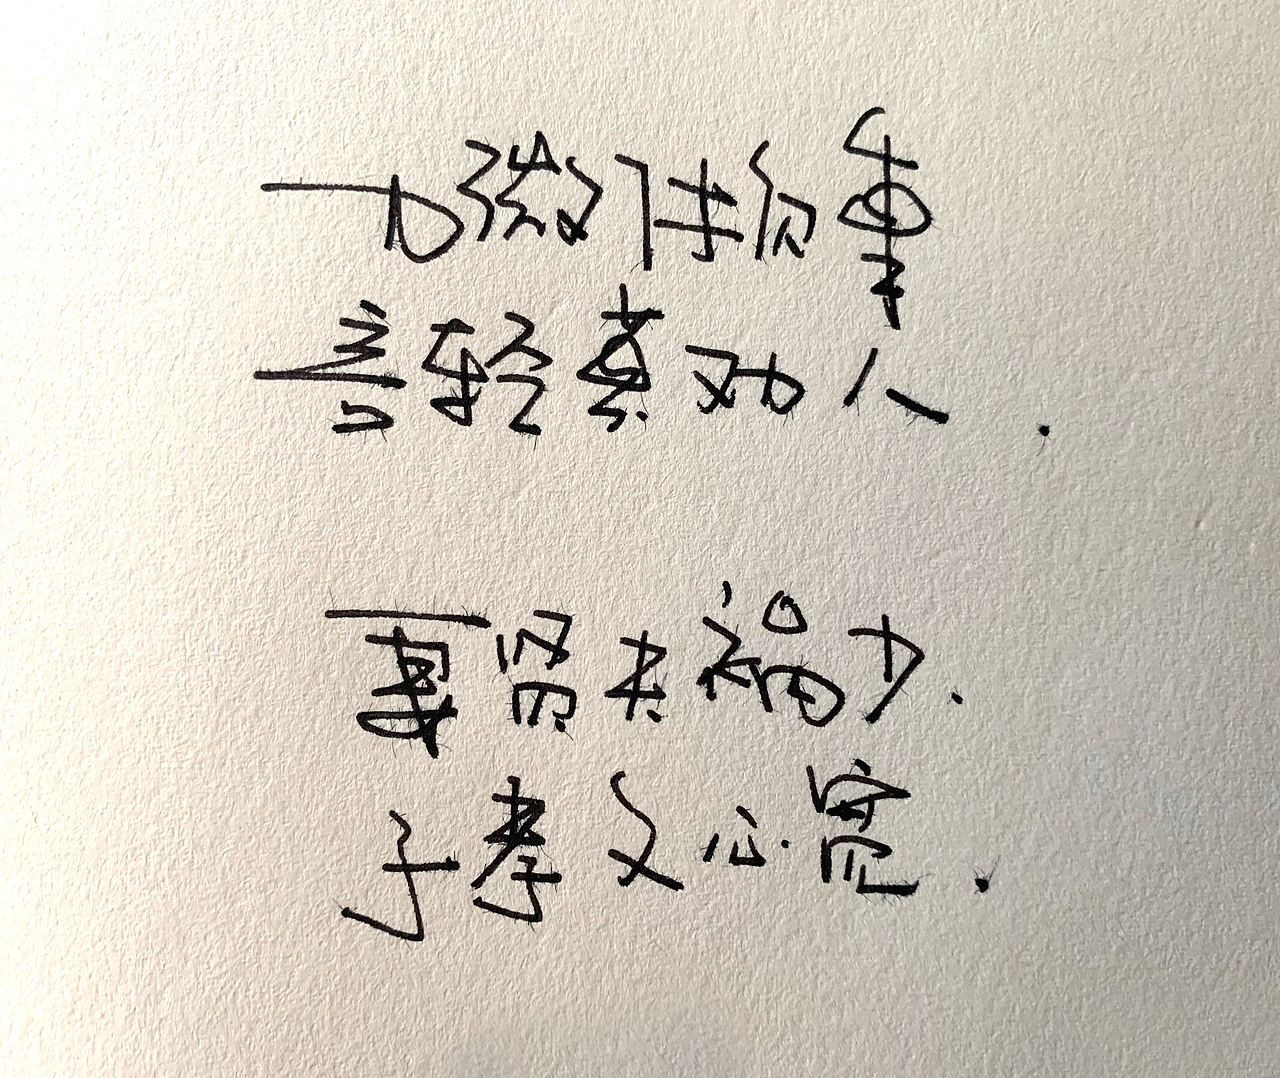 力微休负重
言轻莫劝人.
妻贤夫祸少.
子孝父心宽.